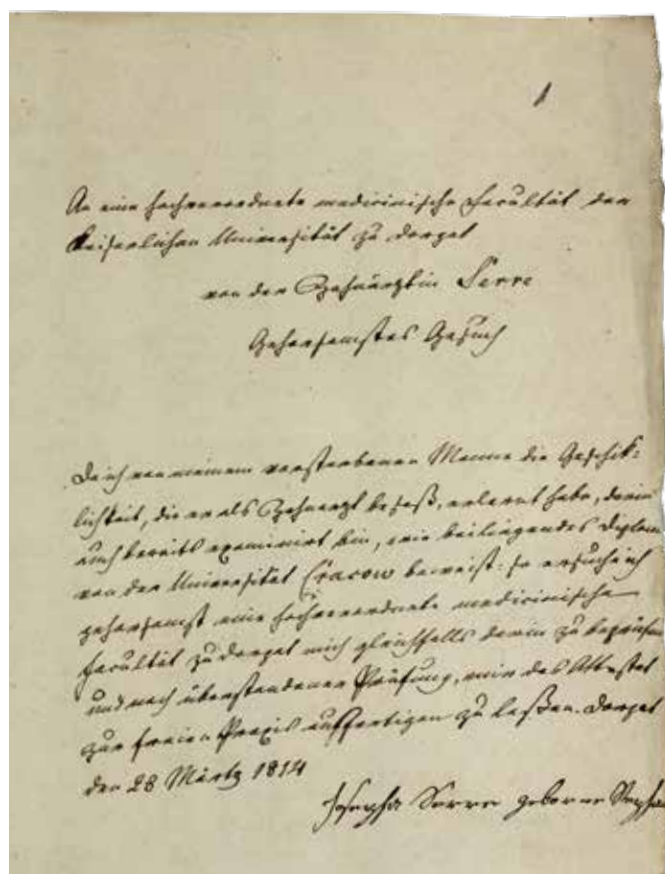 1
An eine hochverordnete medicinische Facultät der
Kaiserlichen Universität zu Dorpat
von der Zahnärztin Serre
Gehorsamstes Gesuch
Da ich von meinem verstorbenen Manne die Geschik-
lichkeit, die er als Zahnarzt besaß, erlernt habe, darin
auch bereits examinirt bin, wie beiliegendes Diplom
von der Universität Cracow beweist: so ersuche ich
gehorsamst eine hochverordnete medicinische
Facultät zu Dorpat mich gleichfalls darin zu begrüfen
und nach überstandener Prüfung, mir das Attestat
zur freien Praxis ausfertigen zu laßen. Dorpat
den 28 Märtz 1814
Josepha Serre geborne